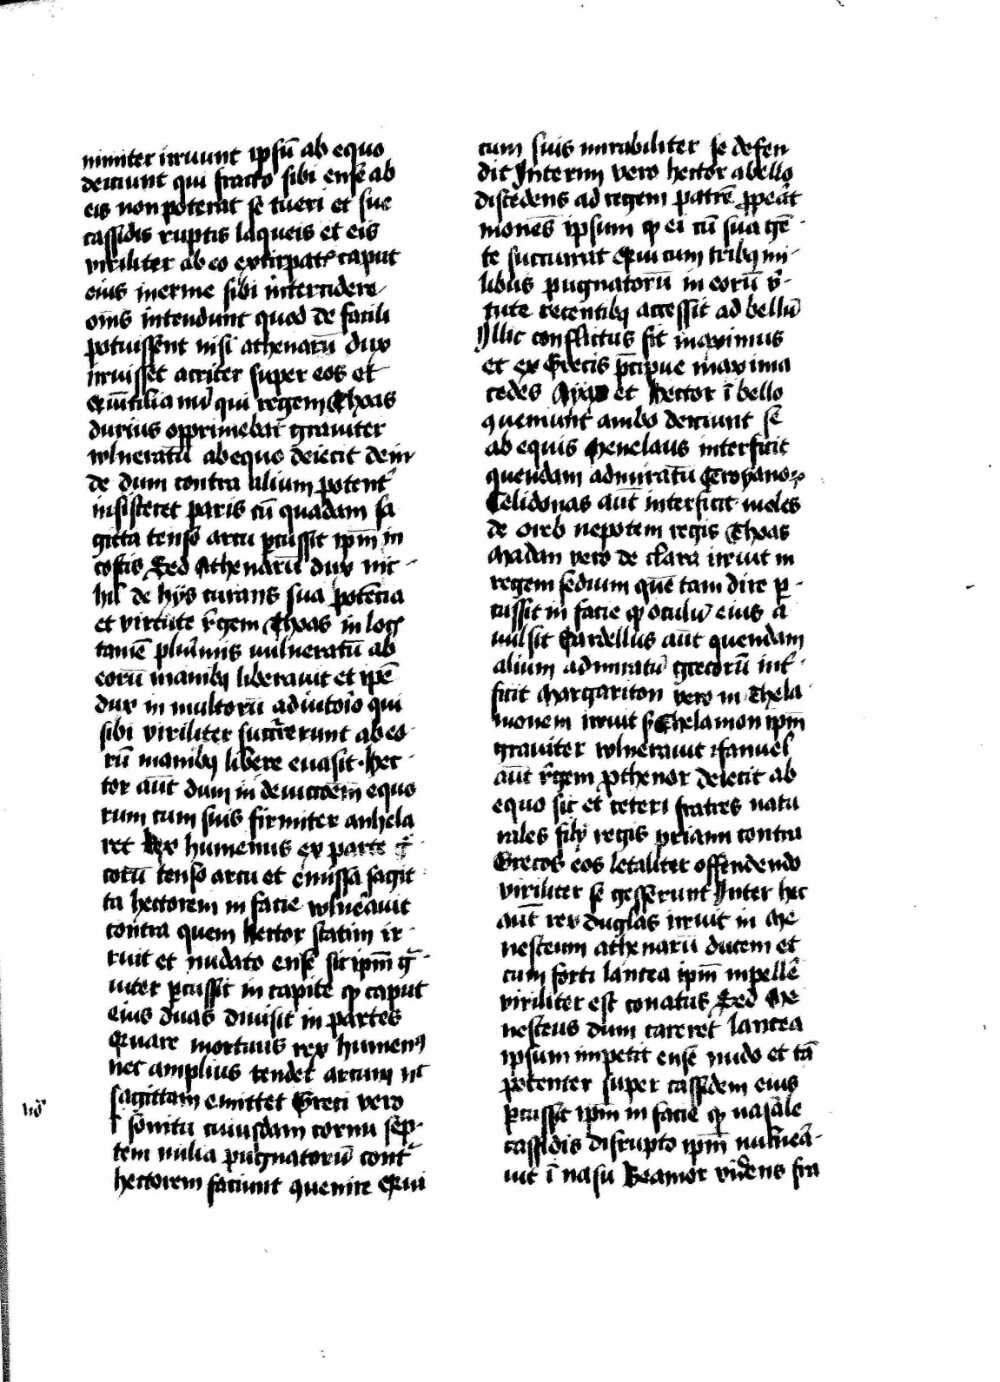 nimiter irruunt ipsū ab equo
deiciunt qui fracto sibi ense ab
eis non poterat se tueri et sue
cassidis ruptis laqueis et eis
viriliter ab eo extirpatꝭ caput
eius inerme sibi intercidere
om̄s intendunt quod de facili
potuissent nisi athenarū dux
irruisset acriter super eos et
qui regem Thoas
durius opprimebat graviter
wlneratū ab equo deiecit dein
de dum contra alium potent᷑
insisteret paris cū quadam sa
gitta tenso arcu ꝑcussit ip̄m in
costis Sed Athenarū dux nic
hil de hijs curans sua potēcia
et virtute r̄gem Thoas in loḡ
tamē plurimis vulneratū ab
eorū manibꝫ liberavit et ip̄e
dux in multorū adiutorio qui
sibi viriliter succ̄rerunt ab eo
rū manibꝫ libere evasit · Hec
tor aūt dum in devictōem equo
rum cum suis firmiter anhela
ret Rex humenus ex parte g᷑
corū tenso arcu et emissa sagit
ta hectorem in facie wlneavit
contra quem hector statim ir
ruit et nudato ense sic ip̄m g᷑
viter ꝑcussit in capite ꝙ caput
eius duas divisit in partes
Quare mortuus rex humenꝰ
nec amplius tendet arcum nec
sagittam emittet Greci vero
sonitu cuiusdam cornu sep
tem milia pugnatorū cont᷑
hectorem faciunt quenire Qui
cum suis mirabiliter se defen
dit Interim vero hector a bello
discedens ad regem patrē ꝓpeāt
monēs ipsum ꝙ ei cū sua gē
te succurrat Qui cum tribꝫ mi
libus pugnatorū in eorū v᷑
tute recentibꝫ accessit ad bellū
Illic conflictus fit maximus
et ex Grecis p̄cipue maxima
cedes Ayax et hector ī bello
queniunt ambo deiciunt sē
ab equis Menelaus interficit
quendam admiratū Troyanoꝝ
Celidonas aūt interficit moles
de oreb nepotem regis Thoas
Madan vero de clara irruit in
regem sedium quē tam dire ꝑ
cussit in facie ꝙ oculū eius a
vulsit Sardellus aūt quendam
alium admiratū grecorū int᷑
ficit Margariton vero in Thela
monem irruit s; Thelamon ip̄m
graviter wlneravit fanuel
aūt r̄gem prothenor deiecit ab
equo sic et ceteri fratres natu
rales filij regis priami contra
Grecos eos letaliter offendendo
viriliter se gesserunt Inter hec
aūt rex duglas irruit in Me
nesteum athenarū ducem et
cum forti lancea ip̄m inpellē
viriliter est conatus Sed Me
nesteus dum careret lancea
ipsum impetit ense nudo et tā
potenter super cassidem eius
ꝑcussit ip̄m in facie ꝙ nasale
cassidis disrupto ip̄m vulneā
vit ī nasu Deamor vid̄ens fra